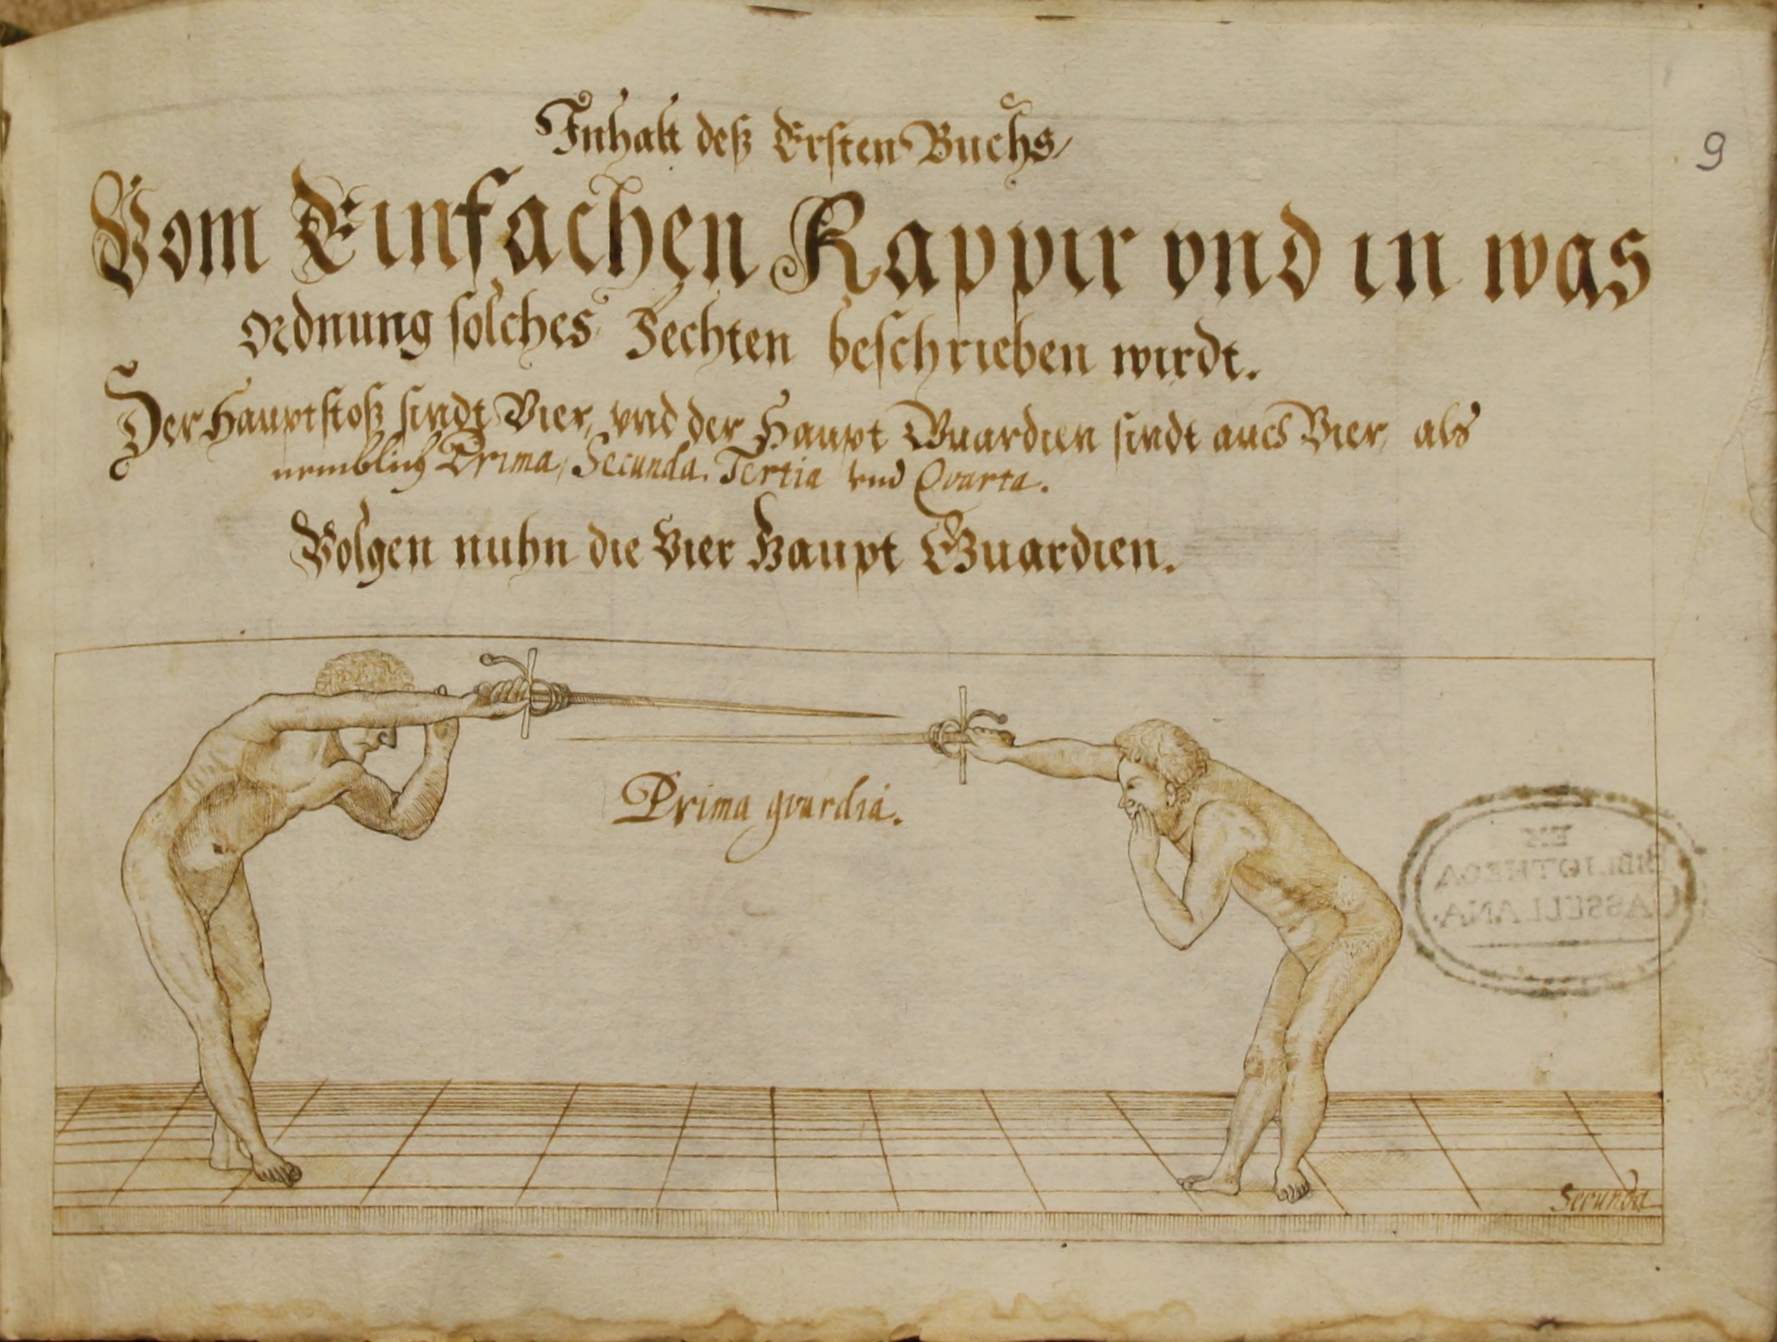 Inhalt deß Ersten Buchs/
9
Vom Einfachen Rappir vnd in was
Ordnung solches Fechten beschrieben wirdt.
Der Hauptstoß sindt Vier, vnd der Haupt Guardien sindt auch Vier, als
nemblich Prima, Secunda. Tertia vnd Qvarta.
Volgen nuhn die Vier Haupt Guardien.
Prima gvardia.
EX
BIBLIOTHECA
CASSELLANA.
Secunda